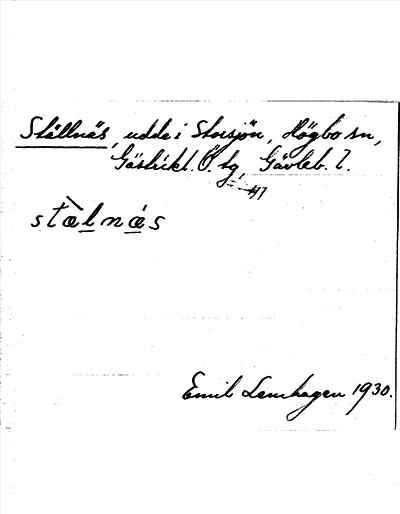 Ställnäs, udde i Storsjön, Högbo sn,
Gästrikl. Ö. tg, Gävleb. l.
stæ̀lnǽs
Emil Lenhagen 1930.